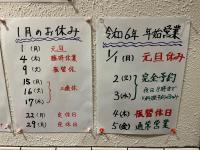 1月のお休み
1(月) 元旦
4(木) 臨時休業
9(火) 振替休
15(月)
16(火) 三連休
17(水)
22(月) 定休日
29(月) 定休日
令和6年 年始営業
1/1(月) 元旦
2(火) 完全予約
3(水)
4(木) 振替休日
5(金) 通常営業